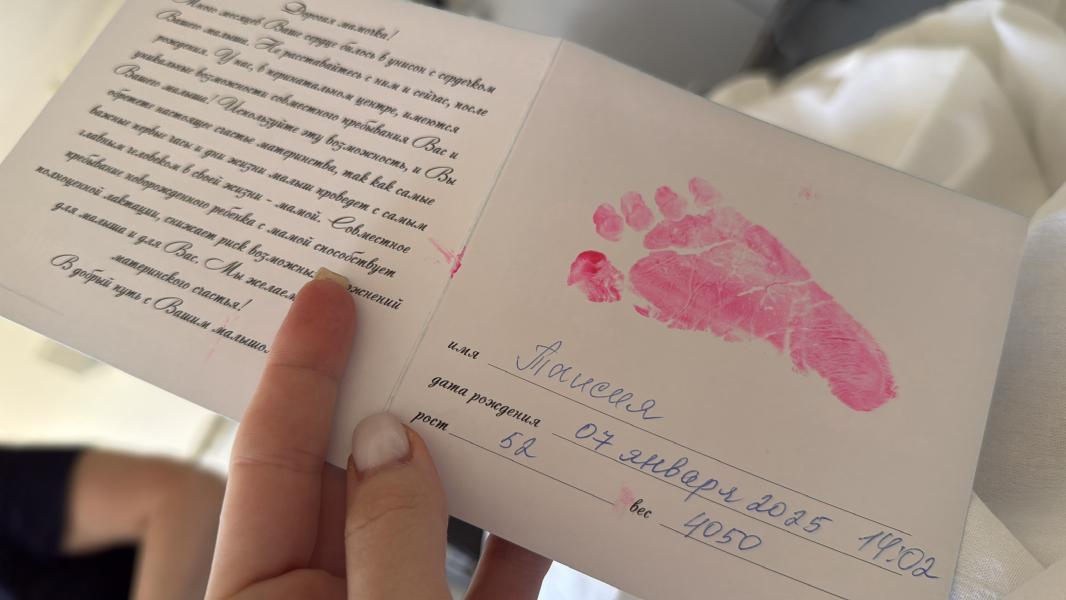 Дорогая мамочка!
Много месяцев Ваше сердце билось в унисон с сердечком
Вашего малыша. Не расставайтесь с ним и сейчас, после
рождения. У нас, в перинатальном центре, имеются
уникальные возможности совместного пребывания Вас и
Вашего малыша! Используйте эту возможность, и Вы
обретете настоящее счастье материнства, так как самые
важные первые часы и дни жизни малыш проведет с самым
главным человеком в своей жизни - мамой. Совместное
пребывание новорожденного ребенка с мамой способствует
полноценной лактации, снижает риск
для малыша и для Вас. Мы желаем
материнского счастья!
В добрый путь с Вашим
имя Таисия
дата рождения 07 января 2025 14:02
рост 52 вес 4050